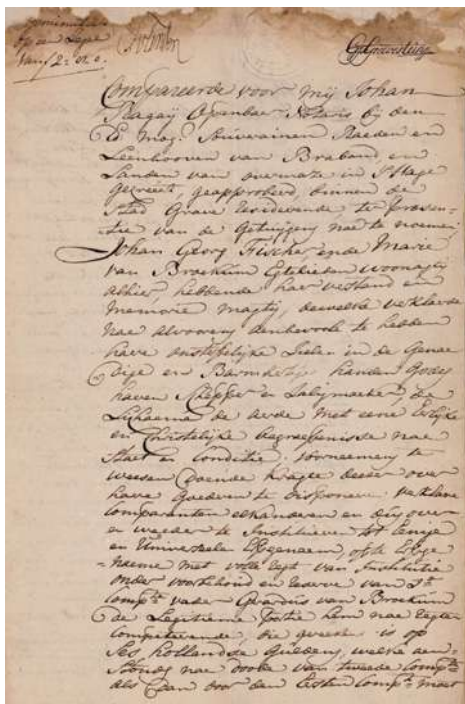 op een Zegel
van f 2:
Compareerde voor mij Johan
Openbaer Notaris bij den
Ed Mog: Souverainen Raeden en
Leenhooven van Braband, en
Landen van overmaze in S'Hage
geapprobeerd, binnen de
Stad Grave residerende, ter presen-
tie van de getuijgen nae te noemen
Johan Georg Fischer ende Marie
van Brockum Egtelieden woonagtig
alhier, hebbende haer verstand en
Memorie magtig, dewelke verklaerde
nae alvoorens aenbevole te hebben
hare onsterfelijke Zielen in de Genae
dige en Barmhertige handen Gods
haren Schepper en Salijmaeker, de
Lichaeme de aerde met eene Eerlijke
en Christelijke begraeffenisse nae
Staet en Conditie. voorneemens te
weesen Doende kragte deeser over
hare Goederen te disponeren verklare
Comparanten elkanderen en dus over
en weeder te Institueren tot Eenige
en Universeele Erfgenaem, ofte Erfge
=naeme met volle regt van Institutie
onder voorbehoud en reserve van sts
Compts vader van Brockum
de Legitieme Portie hem nae regten
Competeerende, die is op
Ses hollandse Guldens, welke aen=
=stonds nae doode van tweede Compts
als dan door den Eersten Compt moet